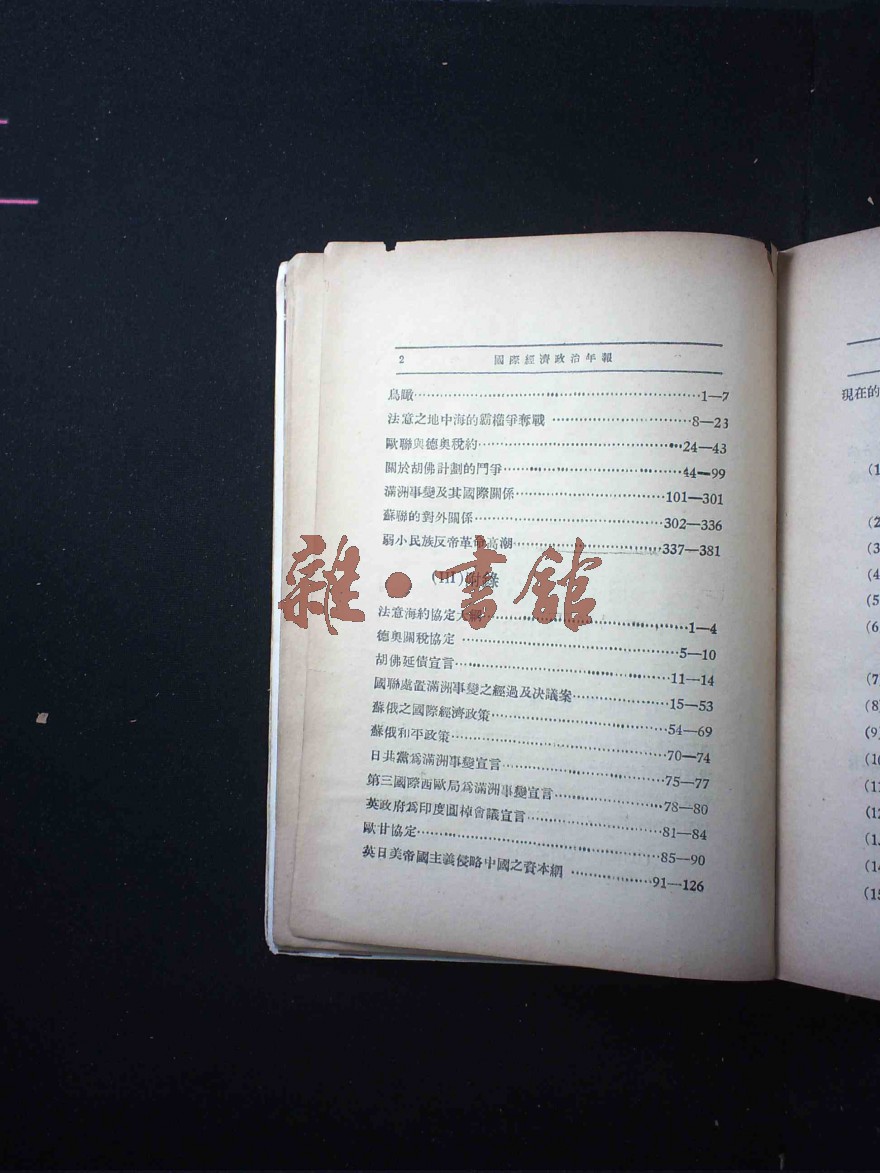 2 國際經濟政治年報
鳥瞰……1—7
法意之地中海的霸權爭奪戰……8—23
歐聯與德奧稅約……24—43
關於胡佛計劃的鬥爭……44—99
滿洲事變及其國際關係……101—301
蘇聯的對外關係……302—336
弱小民族反帝革命高潮……337—381
(III)附錄
法意海約協定大綱……1—4
德奧關稅協定……5—10
胡佛延債宣言……11—14
國聯處置滿洲事變之經過及決議案……15—53
蘇俄之國際經濟政策……54—69
蘇俄和平政策……70—74
日共黨爲滿洲事變宣言……75—77
第三國際西歐局爲滿洲事變宣言……78—80
英政府爲印度圓棹會議宣言……81—84
歐甘協定……85—90
英日美帝國主義侵略中國之資本網……91—126
雜·書館
現在的
(1
(2
(3
(4
(5
(6
(7
(8
(9
(10
(11
(12
(1
(14
(15